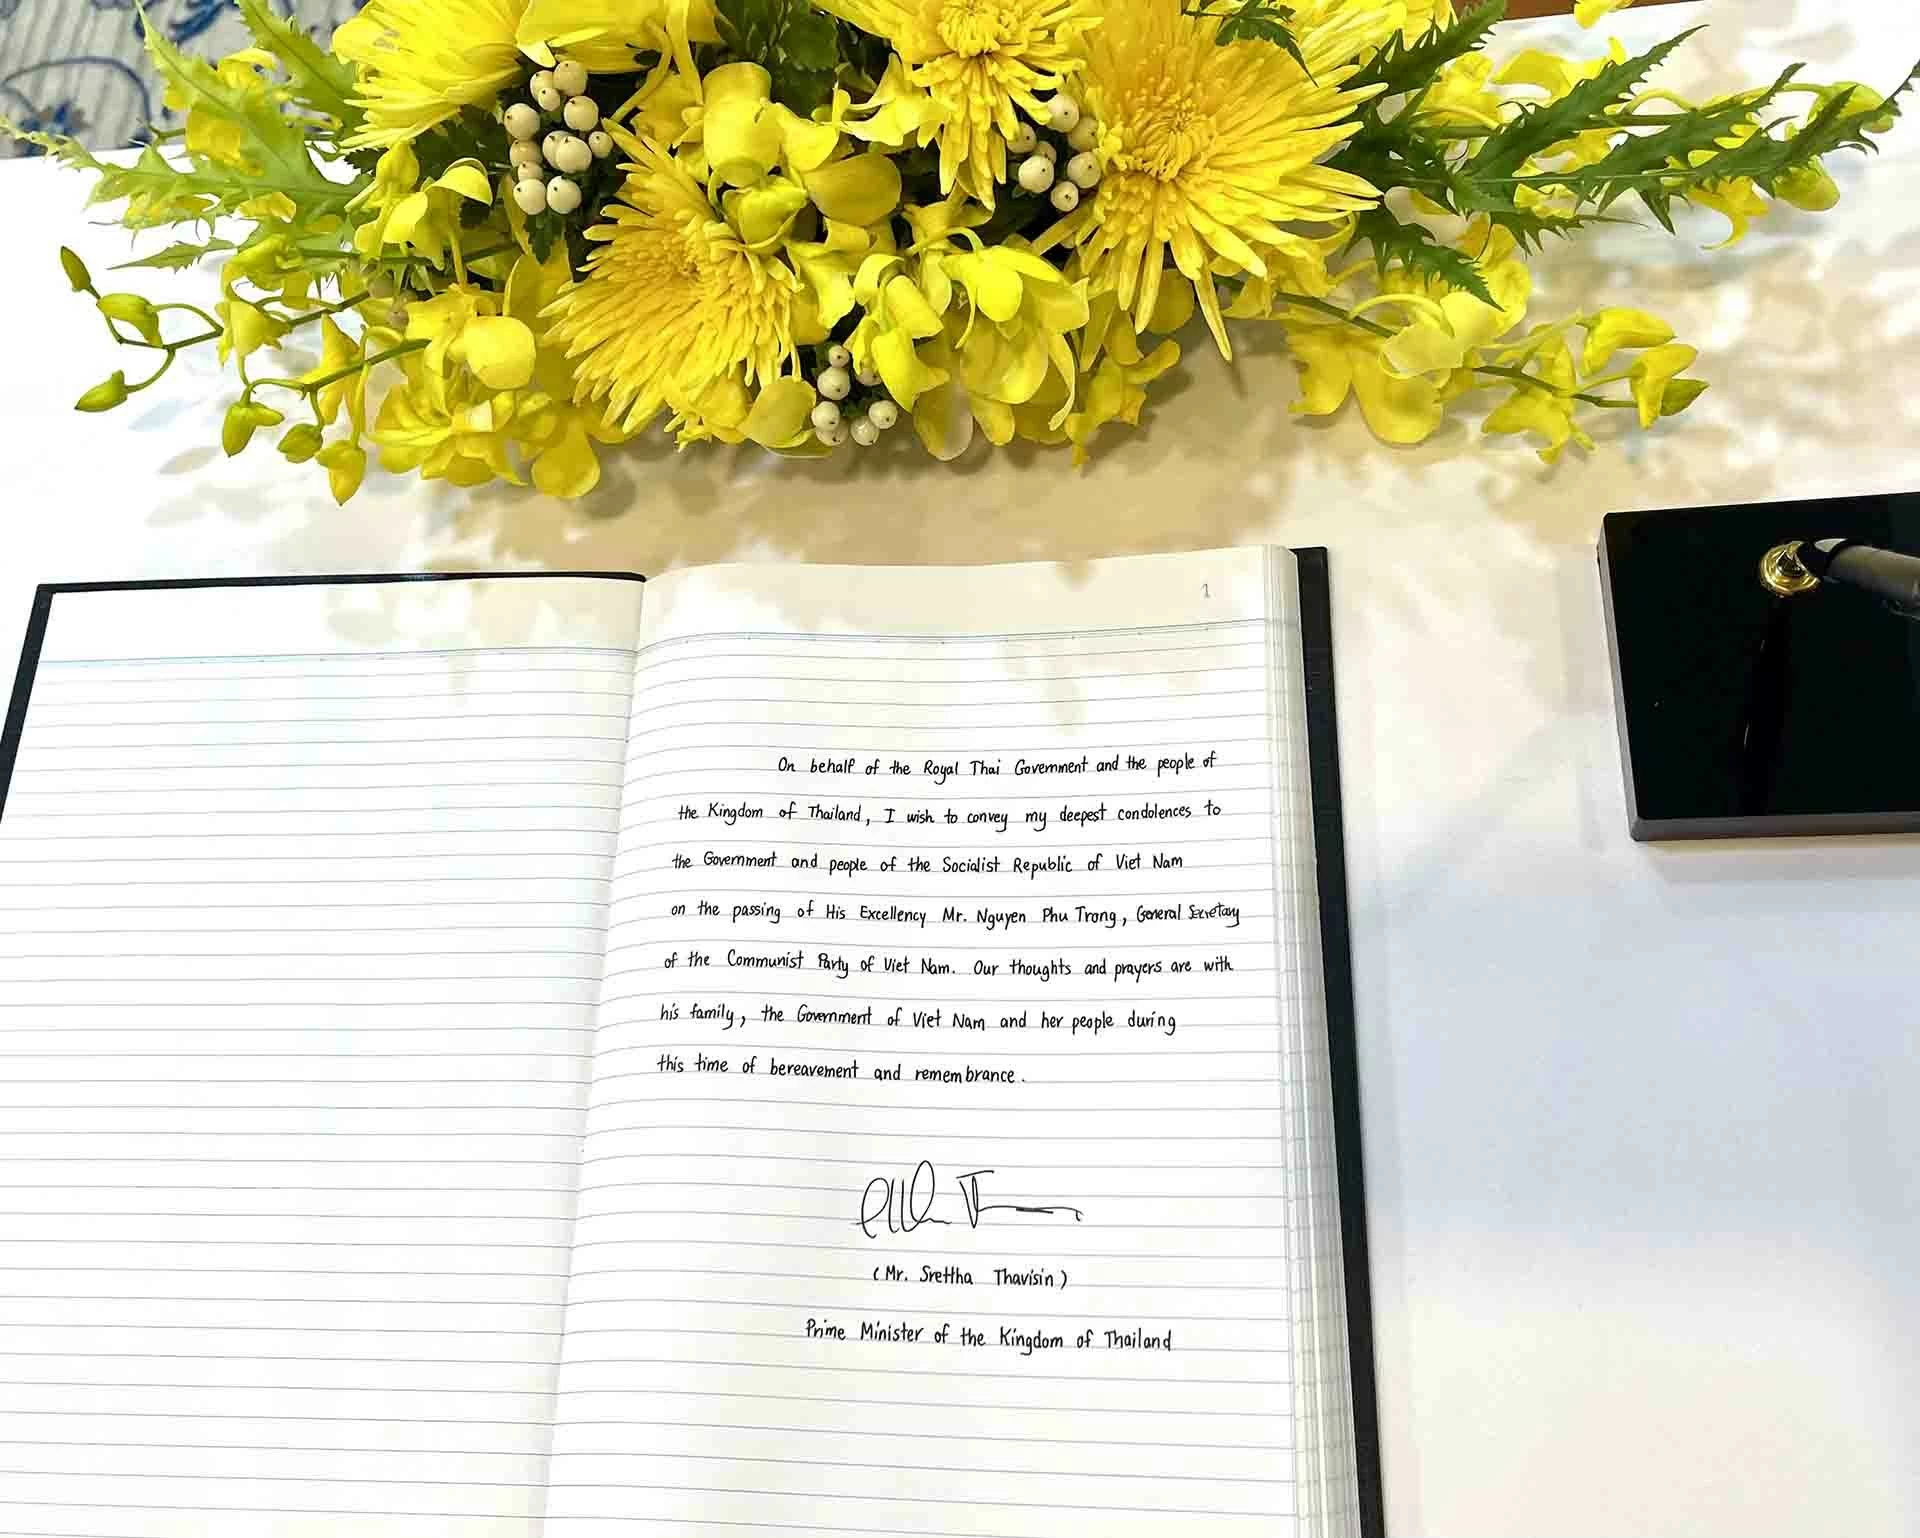 1
On behalf of the Royal Thai Government and the people of
the Kingdom of Thailand, I wish to convey my deepest condolences to
the Government and people of the Socialist Republic of Viet Nam
on the passing of His Excellency Mr. Nguyen Phu Trong, General Secretary
of the Communist Party of Viet Nam. Our thoughts and prayers are with
his family, the Government of Viet Nam and her people during
this time of bereavement and remembrance.
(Mr. Srettha Thavisin)
Prime Minister of the Kingdom of Thailand